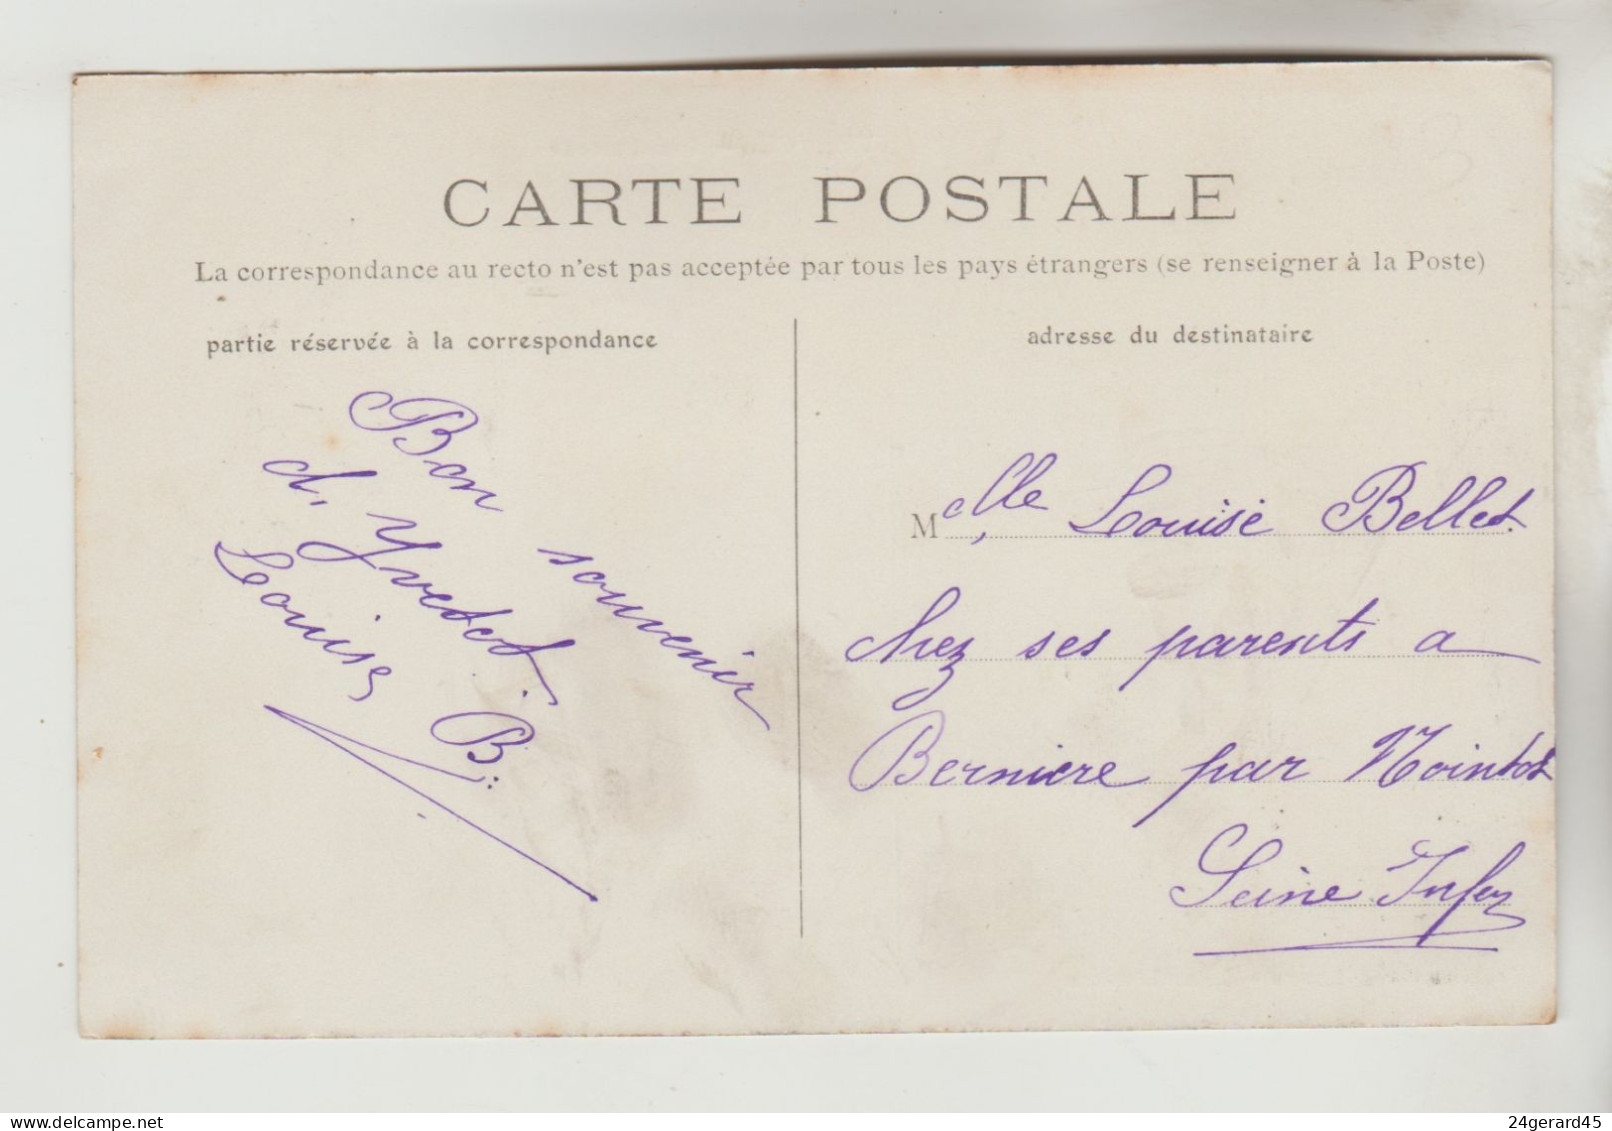 CARTE POSTALE
La correspondance au recto n'est pas acceptée par tous les pays étrangers (se renseigner à la Poste)
partie réservée à la correspondance
Bon souvenir
d, Yvetot
Louise B.
adresse du destinataire
Melle Louise Bellet
chez ses parents a
Berniere par Nointot
Seine Infer
delcampe.net
24gerard45